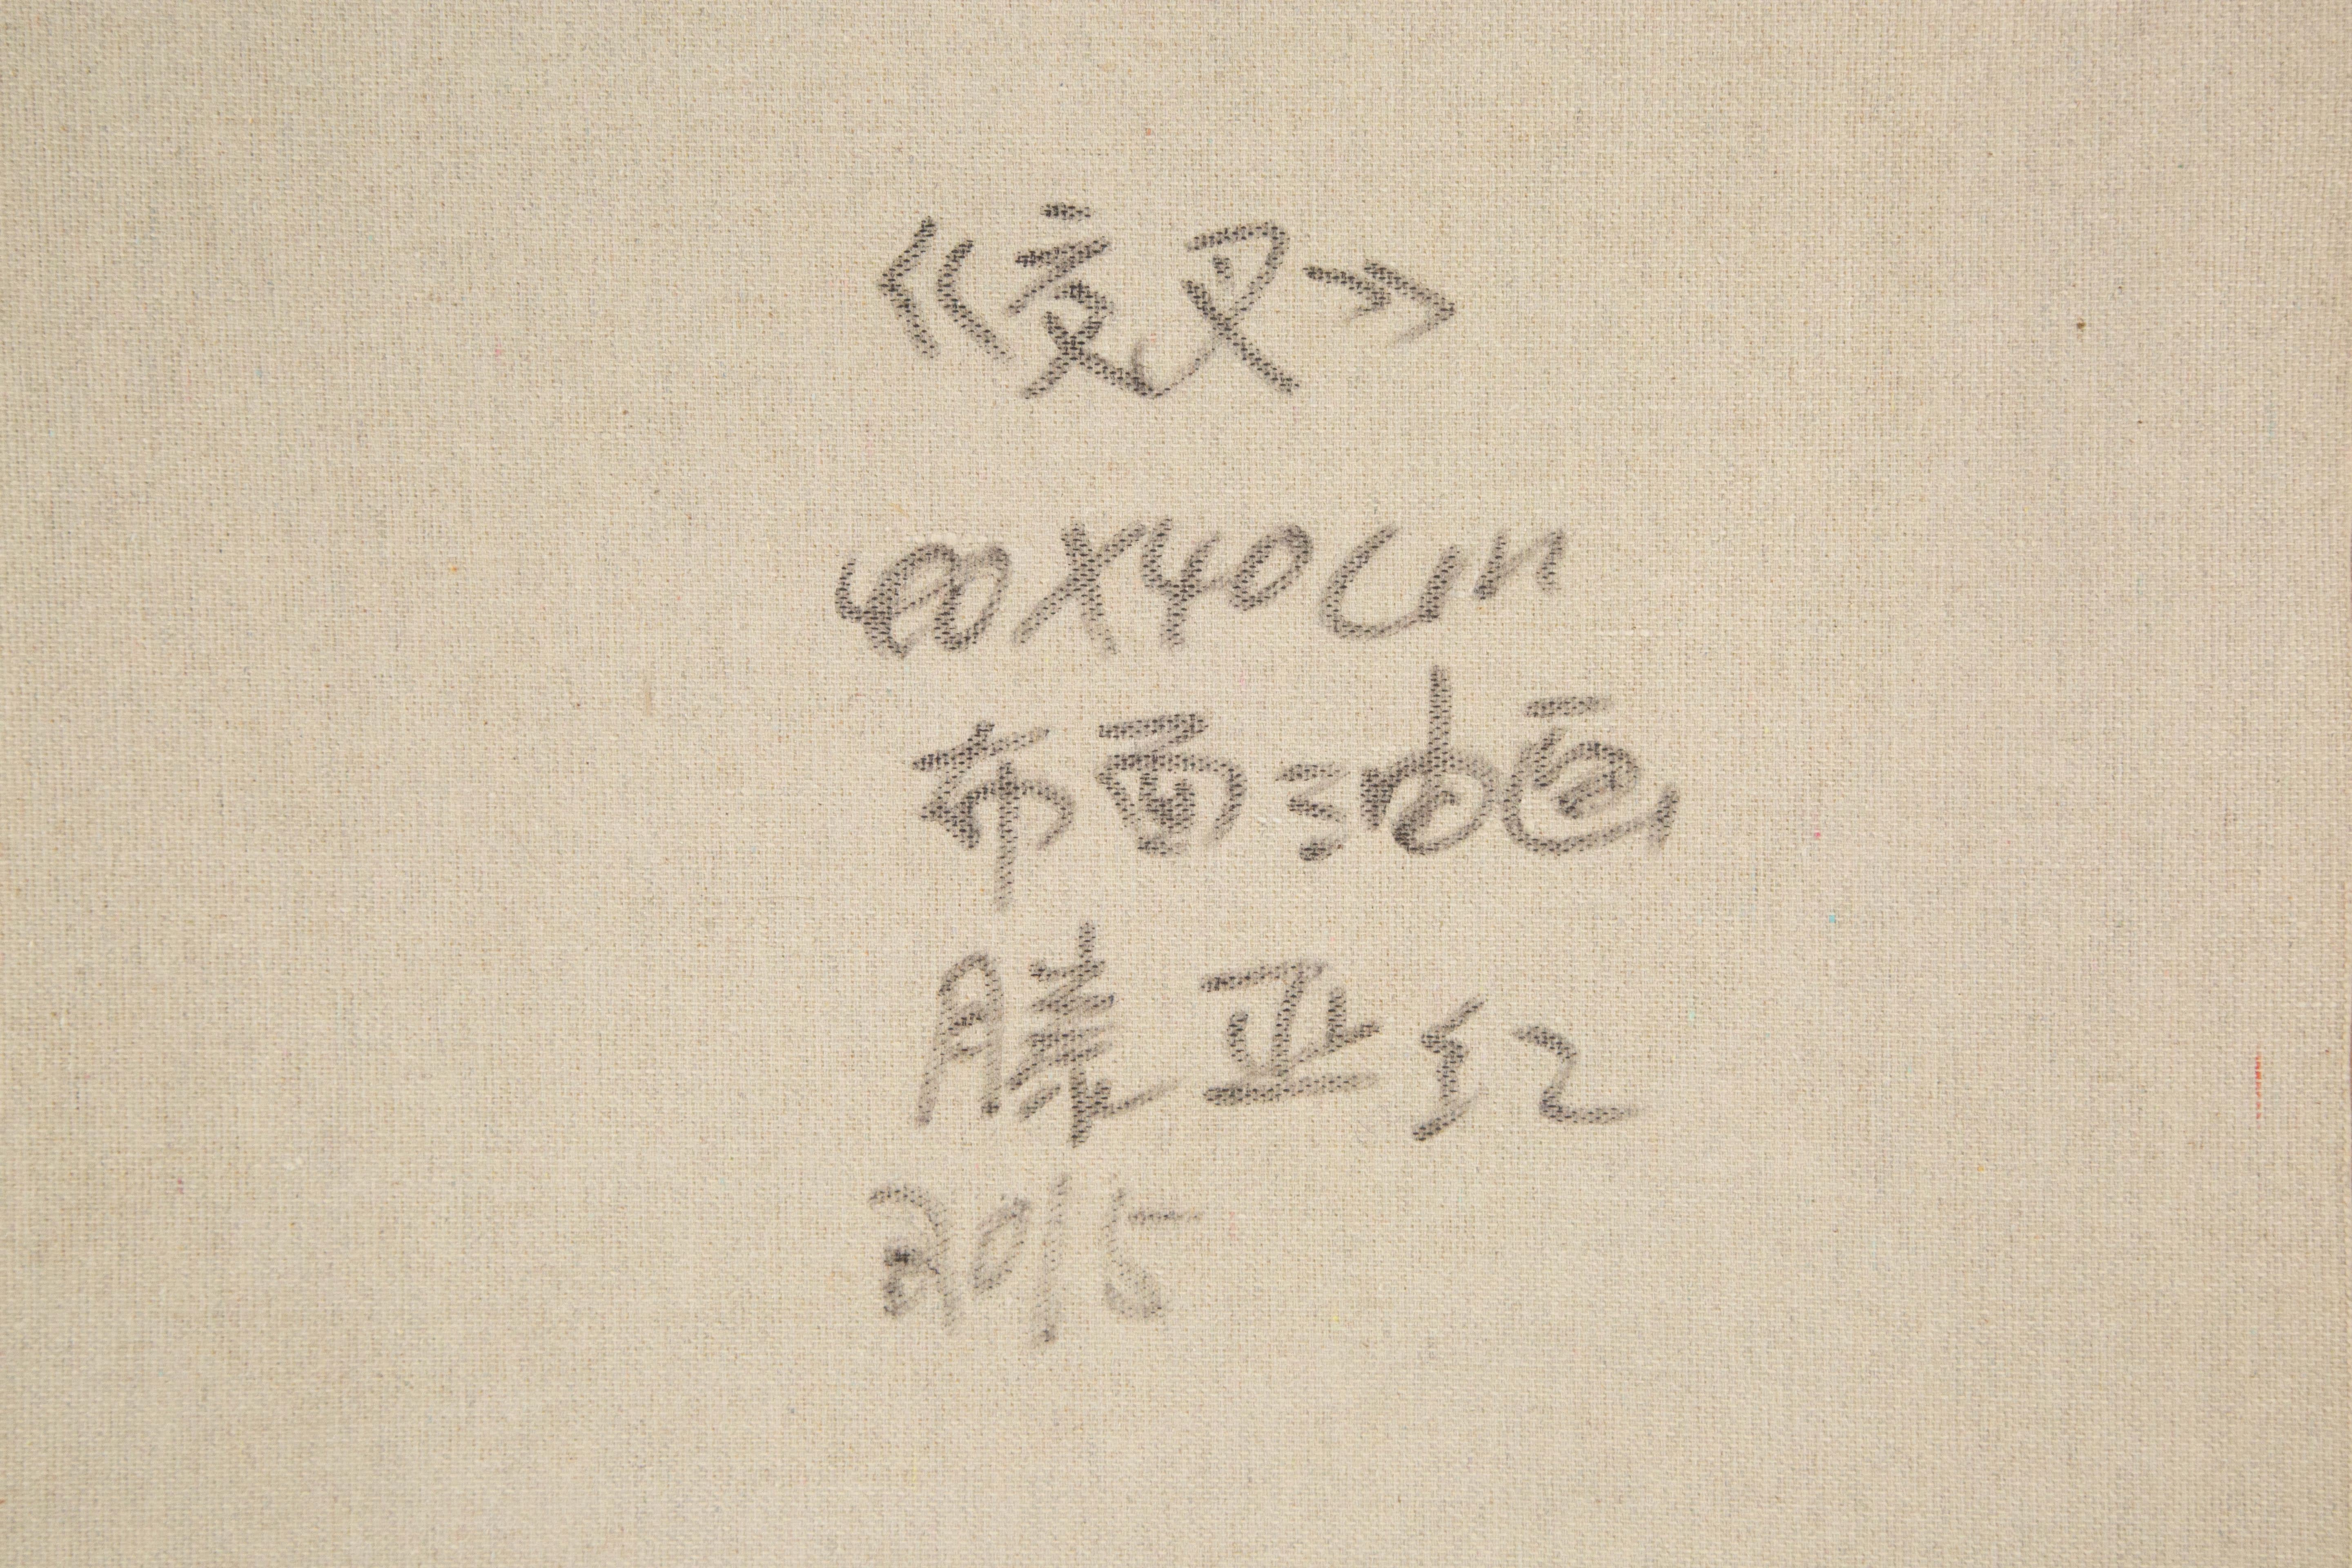 《交叉》
40X40cm
布面油画
滕亚红
2015